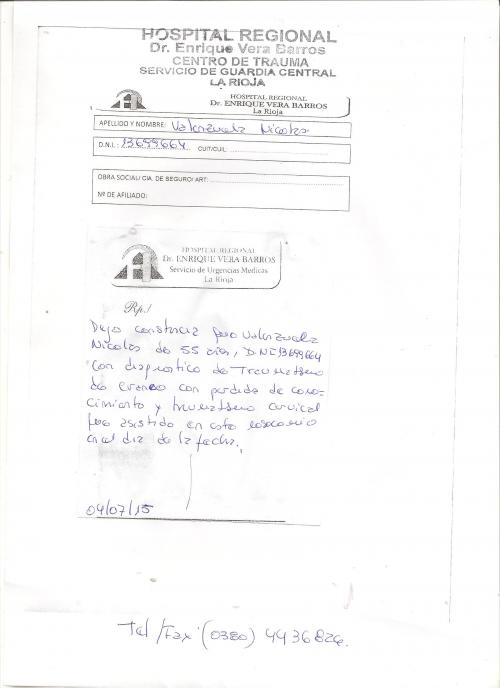 HOSPITAL REGIONAL
Dr. Enrique Vera Barros
CENTRO DE TRAUMA
SERVICIO DE GUARDIA CENTRAL
LA RIOJA
HOSPITAL REGIONAL
Dr. ENRIQUE VERA BARROS
La Rioja
APELLIDO Y NOMBRE: Valenzuela Nicolas
D.N.I.: 13699664 CUIT/CUIL:
OBRA SOCIAL/ CIA. DE SEGURO/ ART:
Nº DE AFILIADO:
HOSPITAL REGIONAL
Dr. ENRIQUE VERA BARROS
Servicio de Urgencias Medicas
La Rioja
Rp./
Dejo constancia que Valenzuela
Nicolas de 55 años, DNI 13699664
con diagnostico de Traumatismo
de craneo con perdida de cono-
cimiento y traumatismo cervical
fue asistido en este nosocomio
en el dia de la fecha.
04/07/15
Tel/Fax (0380) 4436824.